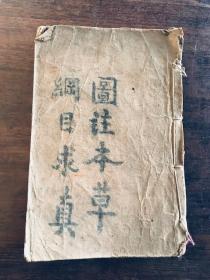 圖註本草
綱目求真